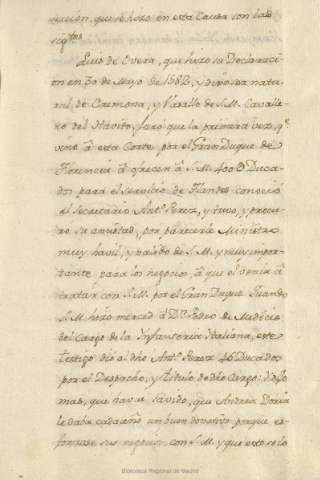 nacion, que se hizo en esta Causa son las
sigtes
Luis de Overa, que hizo su Declaracion
en 30 de Mayo de 1582, y dixo ser natural
de Cremona, y Vasallo de S.M. Cavallero
del Havito, juró que la primera vez, qe.
vino â esta Corte, por el Gran Duque de
Florencia â ofrecer â S.M. 400 D Ducados
para el servicio de Flandes conoció
al Secretario Anto. Perez, y tuvo, y procuró
su amistad, por parecerle Ministro
muy havil, y valído de S.M. y muy importante
para los negocios, â que el venía â
tratar con S.M. por el Gran Duque. Quando
S.M. hizo merced â Dn. Pedro de Medicis
del Cargo de la Infanteria Italiana, este
testigo dió al dho Anto. Perez 4 Ducados
por el Despacho, y titulo de dho Cargo: dijo
mas, que havia sávido, que Andrea Doria
le daba cada año un buen donativo porque
sus negocios con S.M. y que esto se lo
Biblioteca Regional de Madrid